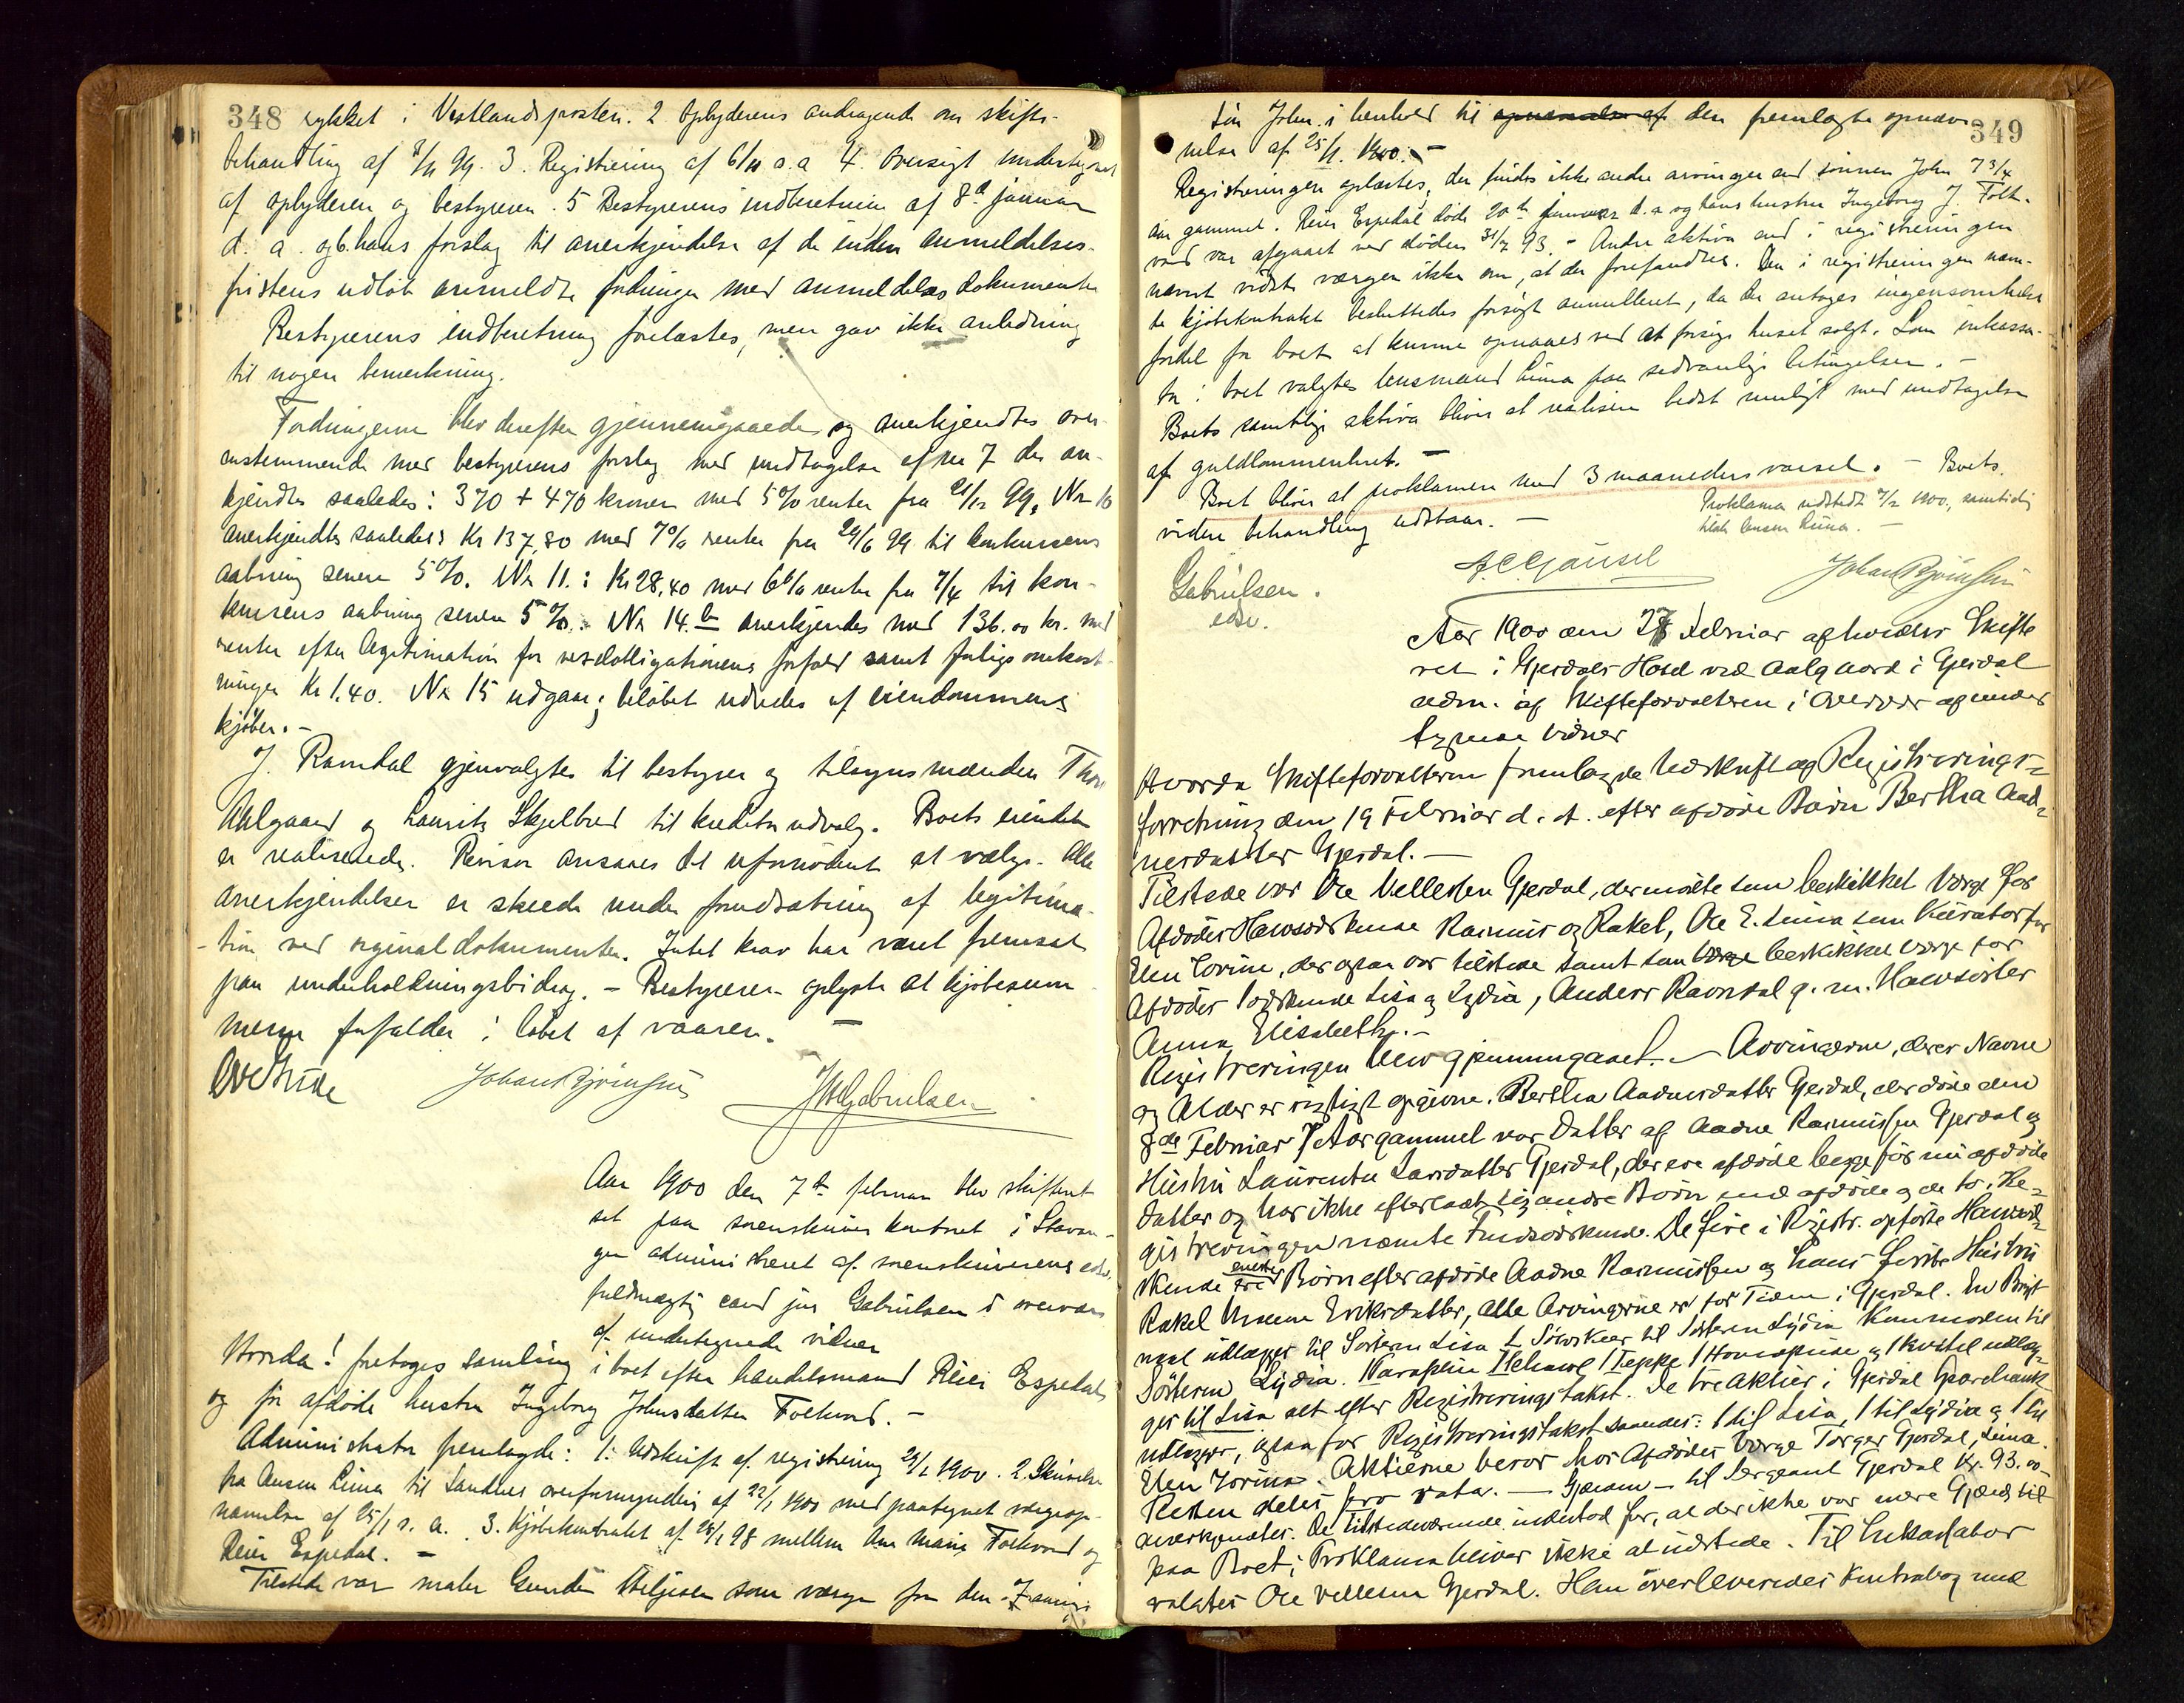 348 rykket i Vestlandsposten. 2 Opbyderens andragende om skifte-
behandling af 8/11 99. 3. Registrering af 6/11 s. a 4. Oversigt undertegnet
af opbyderen og bestyreren. 5 Bestyrerens indberetning af 8de januar
d. a. og 6. hans forslag til anerkjendelse af de inden anmeldelses-
fristens udløb anmeldte fordringer med anmeldelsesdokumenter
Bestyrerens indberetning forelæstes, men gav ikke anledning
til nogen bemerkning.
Fordringerne blev derefter gjennemgaaede og anerkjendtes over-
enstemmende med bestyrerens forslag med undtagelse af no 7 der an-
kjendtes saaledes: 370 + 470 kroner med 5% renter fra 21/12 99, No 10
anerkjendtes saaledes: Kr 137,80 med 7% renter fra 29/6 99 til konkursens
aabning senere 5%. No 11. : Kr 28,40 med 6% renter fra 7/4 til kon-
kursens aabning senere 5%. No 14. b anerkjendes med 136.00 kr. med
renter efter legitimation for vexelobligationens forfald samt farligs omkost-
ninger Kr 1.40. No 15 udgaar; beløbet udredes af eiendommens
kjøber. -
J. Ravndal gjenvalgtes til bestyrer og tilsynsmændene Thor
Aalgaard og Laurits Skjelbred til kreditorudvalg. Boets eiendele
er realiserede. Revisor ansaaes det ufornødent at vælge. Alle
anerkjendelser er skeede under forudsætning af legitima-
tion ved orginaldokumenter. Intet krav har været fremsat
paa underholdningsbidrag. - Bestyreren oplyste at kjøbesum-
mene forfalder i løbet af vaaren. -
Johan Bjørnsen JW Gabrielsen
Aar 1900 den 7de februar blev skifteret
sat paa sorenskriverkontoret i Stavan-
ger administreret af sorenskriverens edsv.
fuldmægtig cand jur Gabrielsen i overvær
af undertegnede vidner
Hvorda! foretoges samling i boet efter handelsmand Reier Espedal,
og før afdøde hustru Ingeborg Johnsdatter Foelvord. -
Administrator fremlagde: 1: Udskrift af registrering 29/1 1900. 2. Skrivelse
fra lensm Lima til Sandnes overformynderi af 22/1 1900 med paategnet værgeop-
nævnelse af 25/1 s. a. 3. Kjøbekontrakt af 28/1 98 mellem Ane Marie Foelvord og
Reier Espedal. -
Tilstede var maler Gunder Steljesen som værge for den 7 aarige
349
søn John i henhold til opnævnelse af den fremlagte opnæv-
nelse af 25/1. 1900. -
Registreringen oplæstes, der findes ikke andre arvinger end sønnen John 7 3/4
aar gammel. Reier Espedal døde 20de januar d. a og hans hustru Ingeborg J. Foel-
vord var afgaaet ved døden 31/7 93. - Andre aktiva end i registreringen
nævnt vidste værgen ikke om, at der forefandtes. Den i registreringen nævn-
te kjøbekontrakt besluttedes forsøgt annulleret, da der antages ingensomhelst
fordel for boet at kunne opnaaes ved at forsøge huset solgt. Som inkassa-
tor i boet valgtes lensmand Lima paa sedvanlige betingelser. -
Boets samtlige aktiva bliver at realisere bedst muligt med undtagelse
af guldlommeuhret. -
Boet bliver at proklamere med 3 maaneders varsel. - Boets
videre behandling udstaar. -
Proklama udstedt 9/2 1900, samtidig
tilsk. lensm Lima. -
Gabrielsen.
edsv.
Johan Bjørnsen
Aar 1900 den 28 Februar afholdtes Skifte
ret i Gjesdals Hotel ved Aalgaard i Gjesdal
adm. af Skifteforvalteren i Overvær af under
tegnede Vidner
Hvorda Skifteforvalteren fremlagde Udskrift af Registrerings-
forretning den 19 Februar d. A. efter afdøde Barn Bertha Aad-
nesdatter Gjesdal. -
Tilstede var Ole Vellesen Gjesdal, der mødte som beskikket Værge for
Afdødes Halvsødskende Rasmus og Rakel, Ole E. Lima som Kurator for
Elen Torine, der ogsaa var tilstede samt som Værge beskikket Værge for
Afdødes Sødskende Lisa og Lydia, Anders Ravndal g. m. Halvsøster
Anna Elisabeth. -
Registreringen blev gjennemgaaet. - Arvingerne, deres Navne
og Alder er rigtigt opgivne. Bertha Aadnesdatter Gjesdal, der døde den
8de Februar 7 Aar gammel var Datter af Aadne Rasmussen Gjesdal og
Hustru Laurentse Larsdatter Gjesdal, der ere afdøde begge før nu afdøde
Datter og har ikke efterladt sig andre Børn end afdøde og de to, Re-
gistreringen nævnte Fuldsødskende. De fire i Registr. opførte Halvsød-
skende ere eneste Børn efter afdøde Aadne Rasmussen og hans første Hustru
Rakel Eriksdatter, alle Arvingerne er for Tiden i Gjesdal. En Bryst
naal udlægges til Søsteren Lisa 1 Sølvskee til Søsteren Lydia Kommoden til
Søsteren Lydia. 1 Schawl 1 Teppe 1 Hovedpude og 1 Kvitel udlæg-
ges til Lisa alt efter Registreringstakst. De tre Aktier i Gjesdal Sparebank
udlægges, ogsaa for Registreringstakst saaledes: 1 til Lisa, 1 til Lydia og 1 til
Elen Torine. Aktierne beror hos Afdødes Værge Torger Gjesdal, Lima.
Resten deles pro rata. - Gjælden - til Sergeant Gjesdal Kr. 93.00
anerkjendtes. De Tilstedeværende indestod for, at der ikke var mere Gjæld til
paa Boet; Proklama bliver ikke at udstede. Til Inkassator
valgtes Ole Vellesen Gjesdal. Han overleveredes Kontrabog med